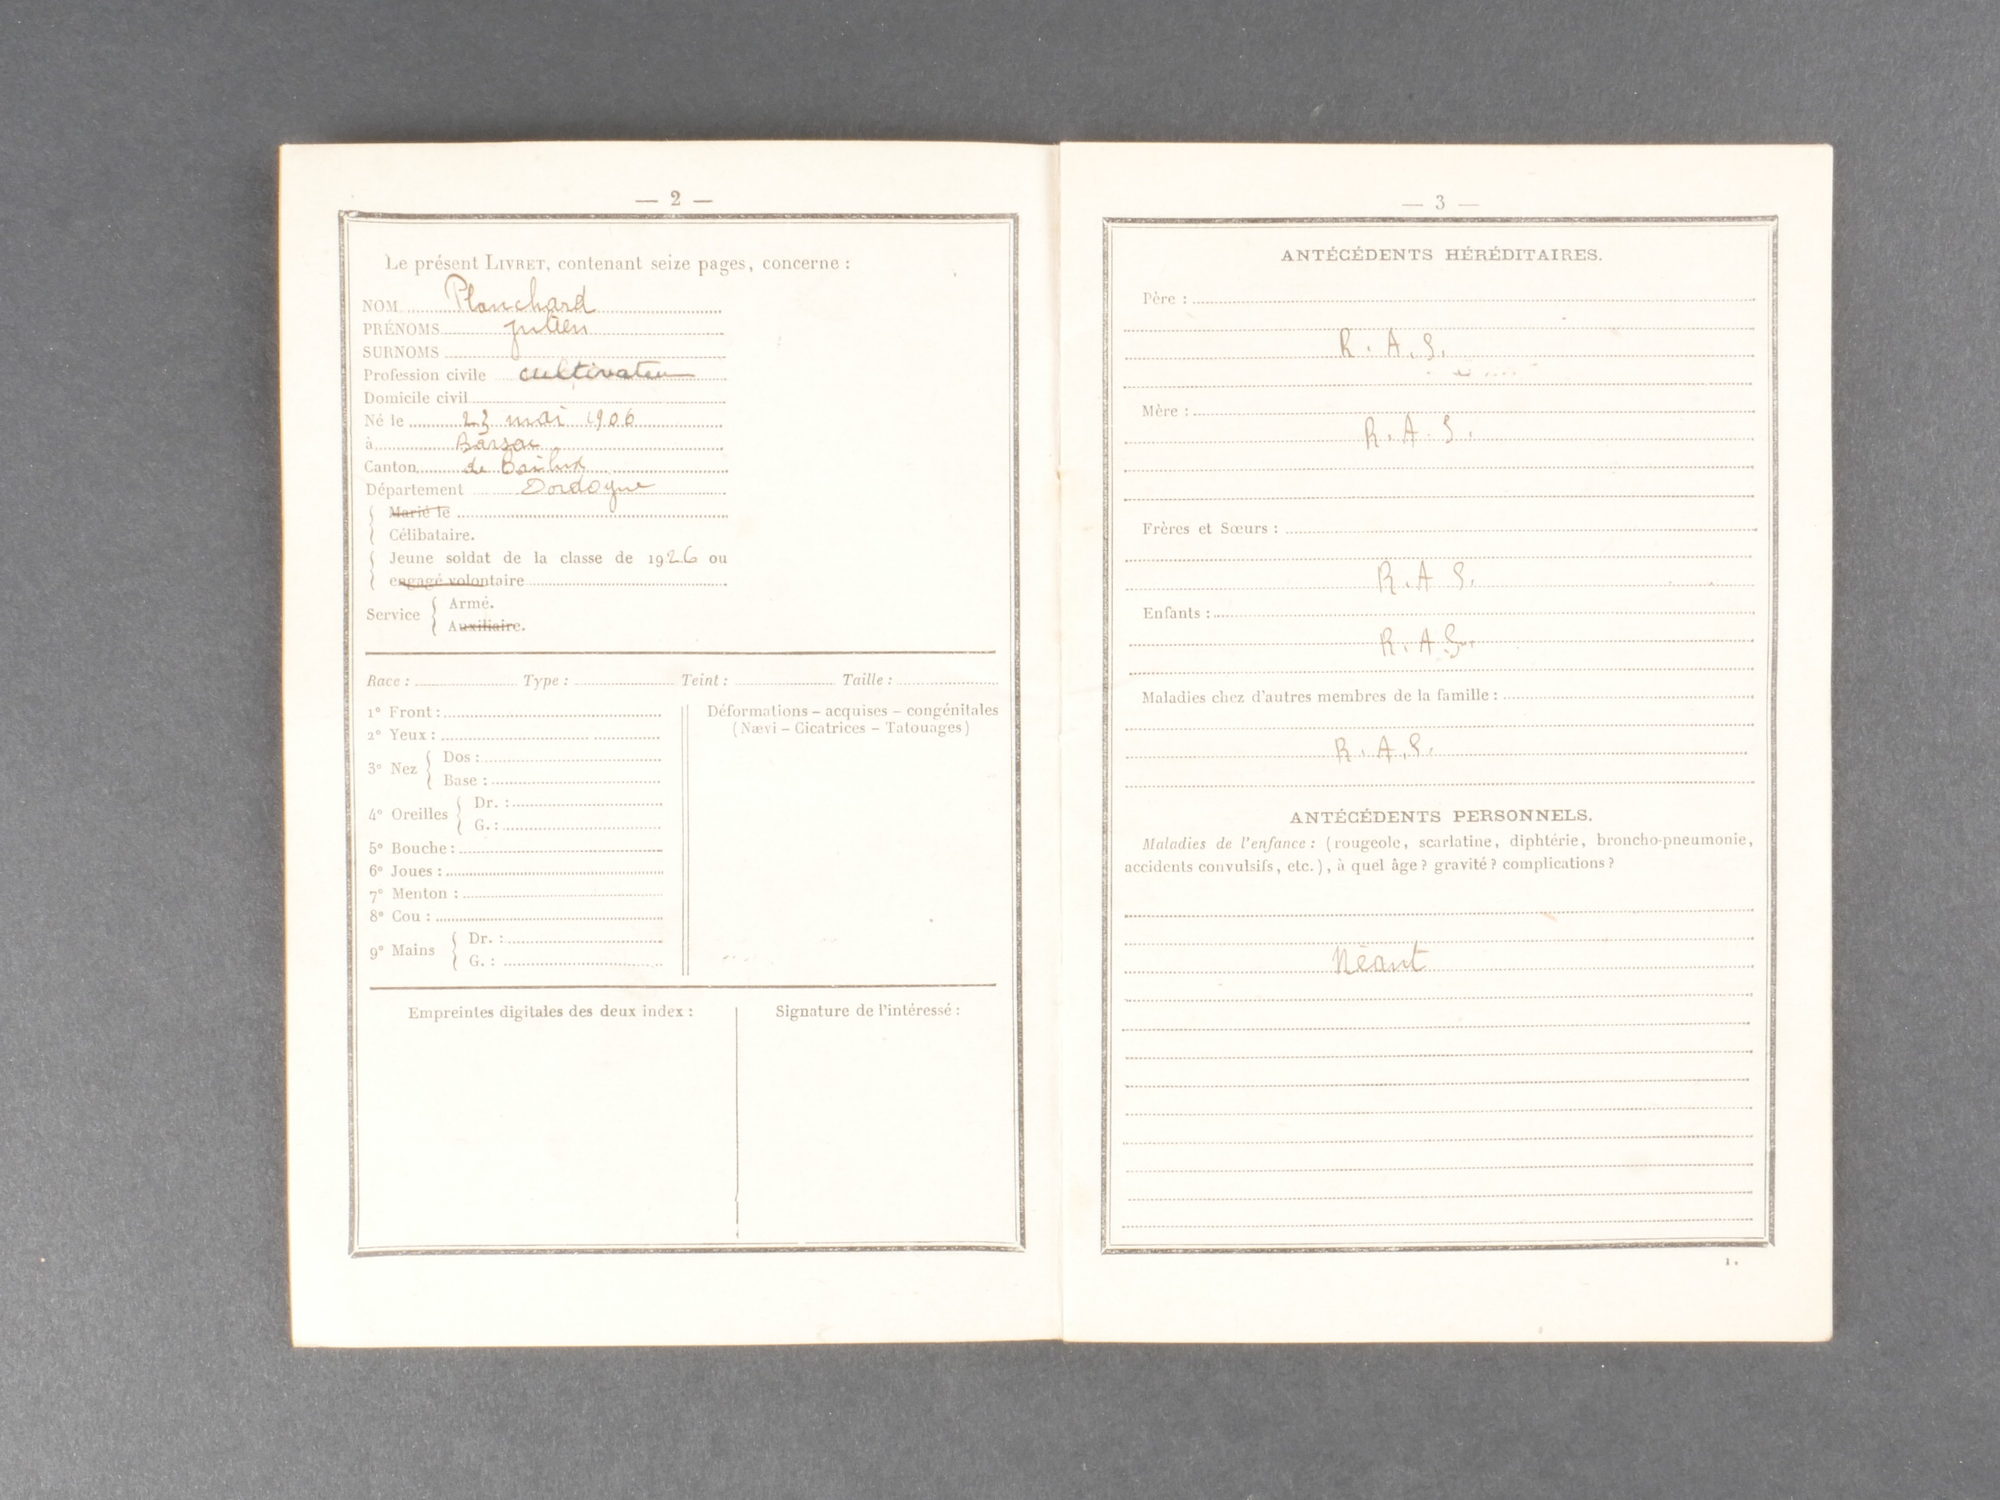 — 2 —
Le présent LIVRET, contenant seize pages, concerne :
NOM Planchard
PRÉNOMS Julien
SURNOMS
Profession civile cultivateur
Domicile civil
Né le 23 mai 1906
à Barsac
Canton de
Département Dordogne
Marié le
Célibataire.
Jeune soldat de la classe de 1926 ou
engagé volontaire
Service
Armé.
Auxiliaire.
Race : Type : Teint : Taille :
1° Front :
2° Yeux :
3° Nez
Dos :
Base :
4° Oreilles
Dr. :
G. :
5° Bouche :
6° Joues :
7° Menton :
8° Cou :
9° Mains
Dr. :
G. :
Déformations – acquises – congénitales
(Nævi – Cicatrices – Tatouages)
Empreintes digitales des deux index :
Signature de l'intéressé :
— 3 —
ANTÉCÉDENTS HÉRÉDITAIRES.
Père :
R. A. S.
Mère :
R. A. S.
Frères et Sœurs :
R. A S.
Enfants :
R. A S.
Maladies chez d'autres membres de la famille :
R. A. S.
ANTÉCÉDENTS PERSONNELS.
Maladies de l'enfance : (rougeole, scarlatine, diphtérie, broncho-pneumonie,
accidents convulsifs, etc.), à quel âge ? gravité ? complications ?
Néant
1.